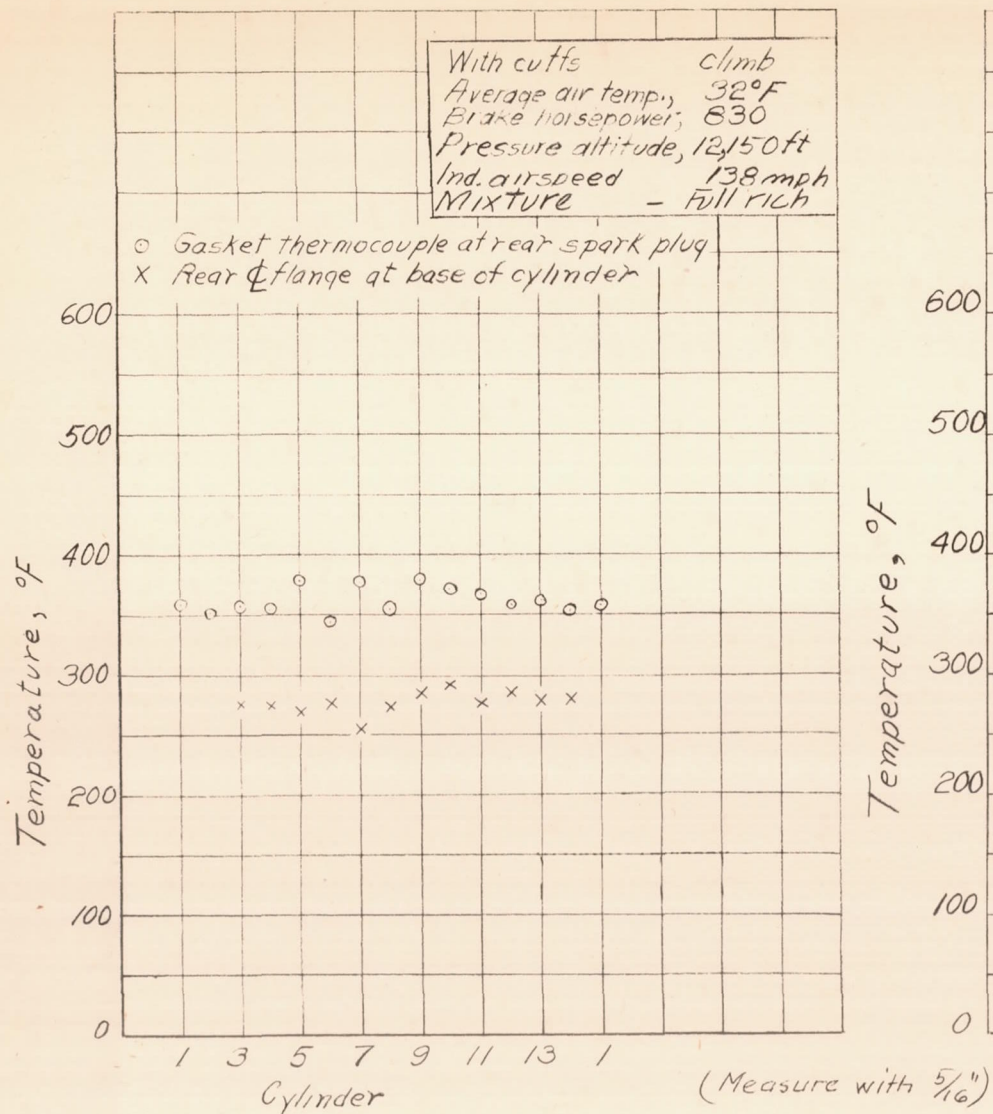 With cuffs climb
Average air temp., 32°F
Brake horsepower, 830
Pressure altitude, 12,150 ft
Ind. airspeed 138 mph
Mixture - Full rich
⊙ Gasket thermocouple at rear spark plug
× Rear ℄ flange at base of cylinder
600
500
400
300
200
100
0
Temperature, °F
1 3 5 7 9 11 13 1
Cylinder
600
500
400
300
200
100
0
Temperature, °F
(Measure with 5/16")